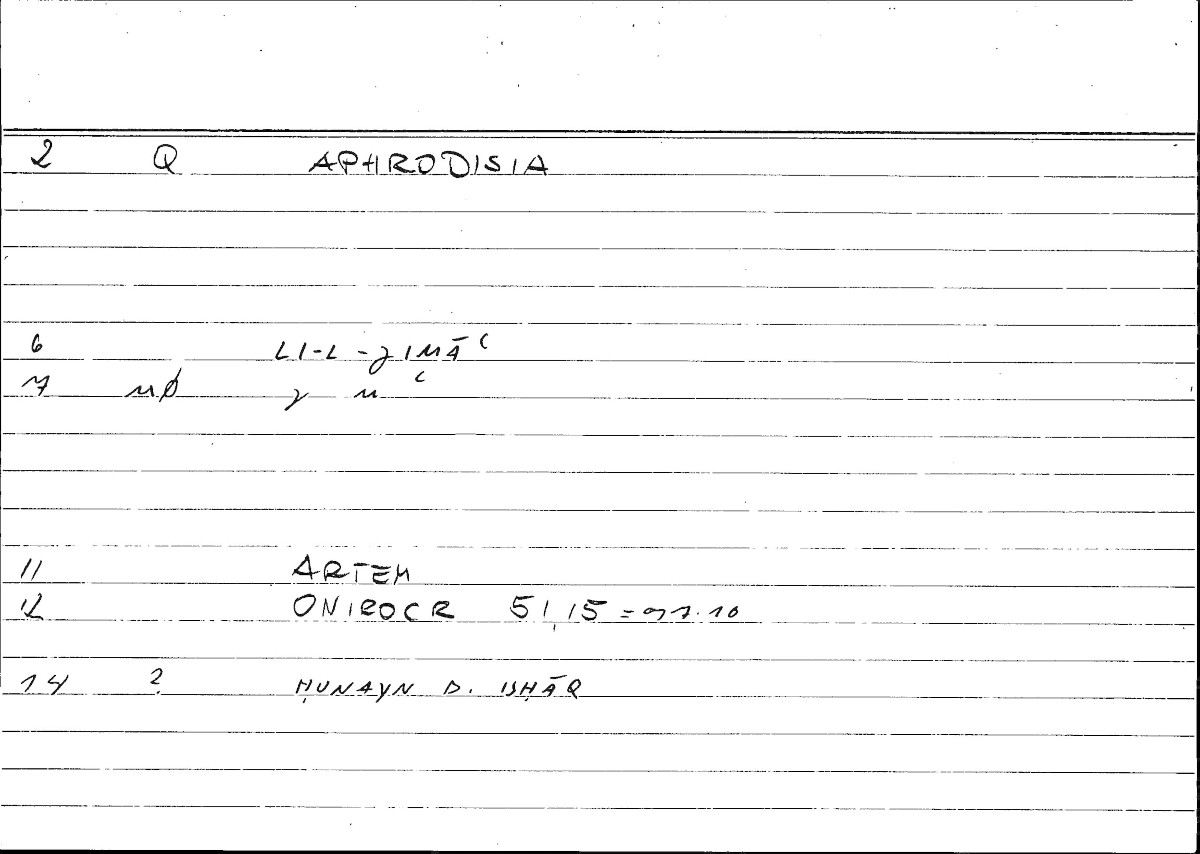 2 Q APHRODISIA
6 LI-L-ǧIMĀʿ
7 MØ ǧ M ʿ
11 ARTEM
12 ONIROCR 51,15 = 97.10
14 ? ḤUNAYN B. ISḤĀQ